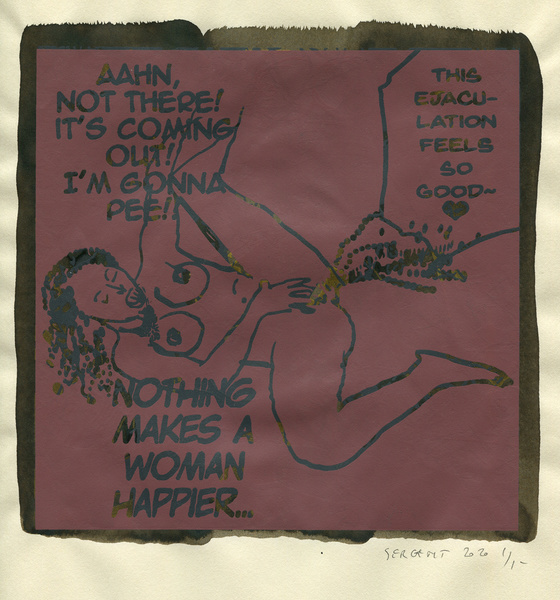 AAHN,
NOT THERE!
IT'S COMING
OUT!
I'M GONNA
PEE!!
THIS
EJACU-
LATION
FEELS
SO
GOOD~
NOTHING
MAKES A
WOMAN
HAPPIER...
SERGENT 2020 1/1-